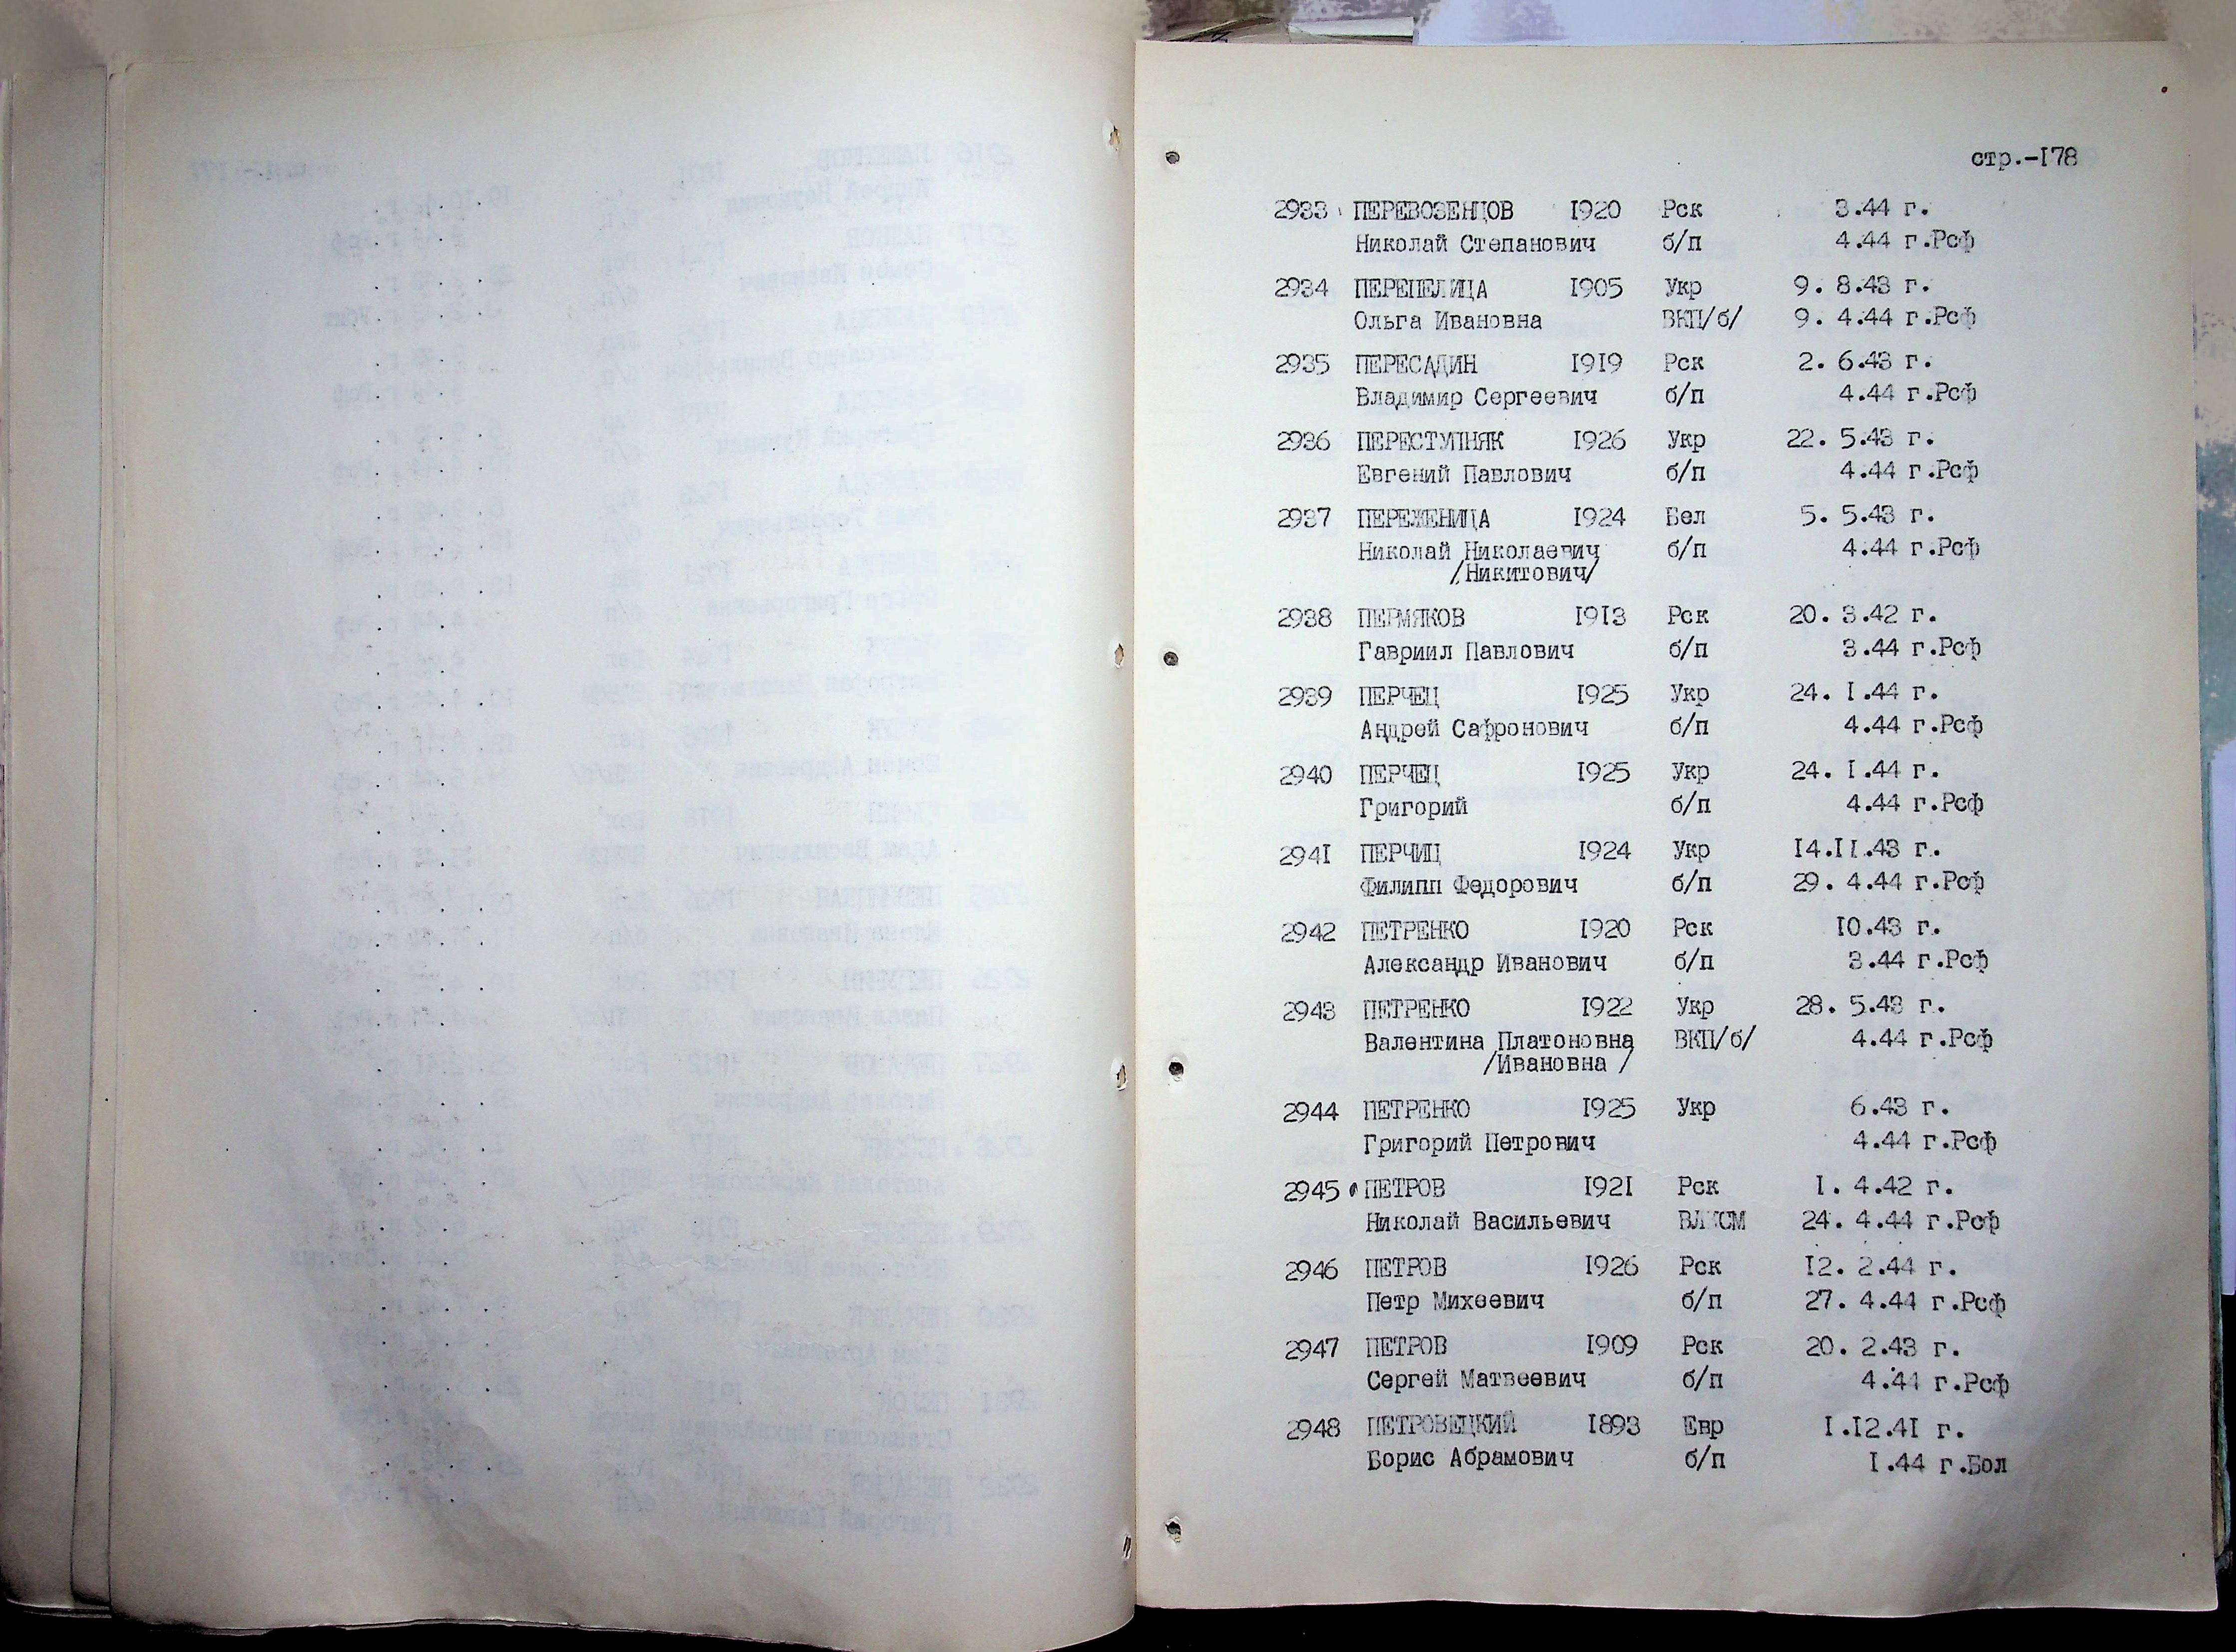 стр.-178
2933 ПЕРЕВОЗЕНЦОВ 1920 Рск 3.44 г.
Николай Степанович б/п 4.44 г.Рсф
2934 ПЕРЕПЕЛИЦА 1905 Укр 9. 8.43 г.
Ольга Ивановна ВКП/б/ 9. 4.44 г.Рсф
2935 ПЕРЕСАДИН 1919 Рск 2. 6.43 г.
Владимир Сергеевич б/п 4.44 г.Рсф
2936 ПЕРЕСТУПНЯК 1926 Укр 22. 5.43 г.
Евгений Павлович б/п 4.44 г.Рсф
2937 ПЕРЕЖЕНИЦА 1924 Бел 5. 5.43 г.
Николай Николаевич б/п 4.44 г.Рсф
/Никитович/
2938 ПЕРМЯКОВ 1913 Рск 20. 3.42 г.
Гавриил Павлович б/п 3.44 г.Рсф
2939 ПЕРЧЕЦ 1925 Укр 24. 1.44 г.
Андрей Сафронович б/п 4.44 г.Рсф
2940 ПЕРЧЕЦ 1925 Укр 24. 1.44 г.
Григорий б/п 4.44 г.Рсф
2941 ПЕРЧИЦ 1924 Укр 14.11.43 г.
Филипп Федорович б/п 29. 4.44 г.Рсф
2942 ПЕТРЕНКО 1920 Рск 10.43 г.
Александр Иванович б/п 3.44 г.Рсф
2943 ПЕТРЕНКО 1922 Укр 28. 5.43 г.
Валентина Платоновна ВКП/б/ 4.44 г.Рсф
/Ивановна /
2944 ПЕТРЕНКО 1925 Укр 6.43 г.
Григорий Петрович 4.44 г.Рсф
2945 ПЕТРОВ 1921 Рск 1. 4.42 г.
Николай Васильевич ВЛКСМ 24. 4.44 г.Рсф
2946 ПЕТРОВ 1926 Рск 12. 2.44 г.
Петр Михеевич б/п 27. 4.44 г.Рсф
2947 ПЕТРОВ 1909 Рск 20. 2.43 г.
Сергей Матвеевич б/п 4.44 г.Рсф
2948 ПЕТРОВЕЦКИЙ 1893 Евр 1.12.41 г.
Борис Абрамович б/п 1.44 г.Бол